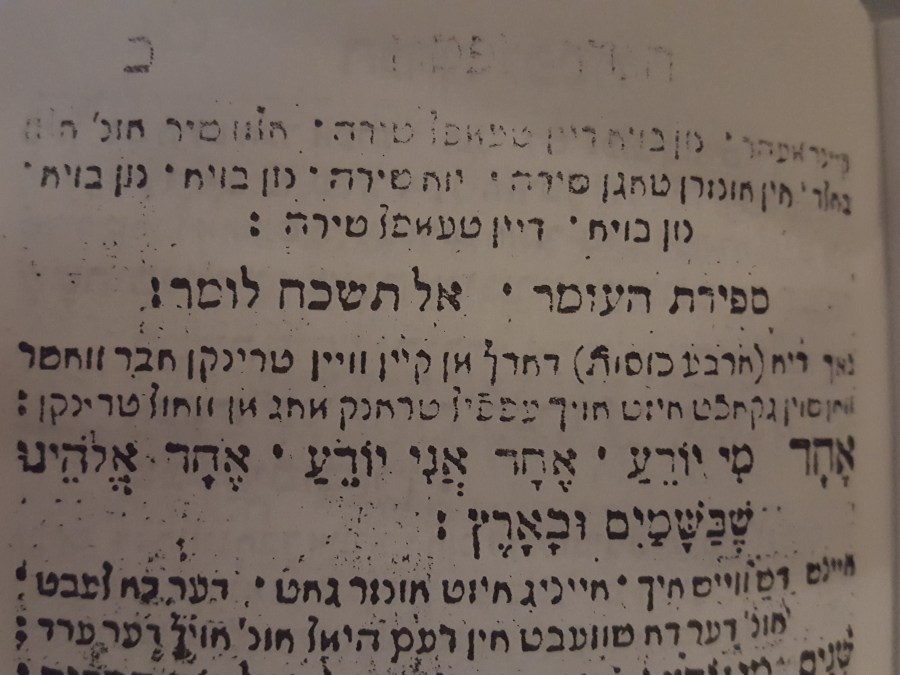 נון בויא דיין טעמפל שירה · אונ'
באלד · אין אונזרן טאגן שירה · יוא שירה · נון בויא · נון בויא ·
נון בויא · דיין טעמפל שירה :
ספירת העומר · אל תשכח לומר:
נאך דיא (ארבע כוסות) דארף מן קיין וויין טרינקן אבר וואסר
גקאכט איזט אויך עפפיל טראנק מאג מן וואול טרינקן :
אֶחָד מִי יוֹדֵעַ · אֶחָד אֲנִי יוֹדֵעַ · אֶחָד אֱלֹהֵינוּ
שֶׁבַּשָּׁמַיִם וּבָאָרֶץ :
איינס דס ווייס איך · אייניג איזט אונזר גאט · דער דא לעבט
אונ' דער דא שוועבט אין דעם הימל אונ' אויף דער ערד :
שְׁנַיִם